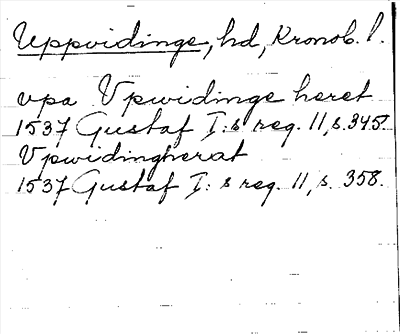 Uppvidinge, hd, Kronob. l.
vpa Vpwidinge heret
1537 Gustaf I:s reg. 11, s. 345.
Vpwidingherat
1537 Gustaf I:s reg. 11, s. 358.